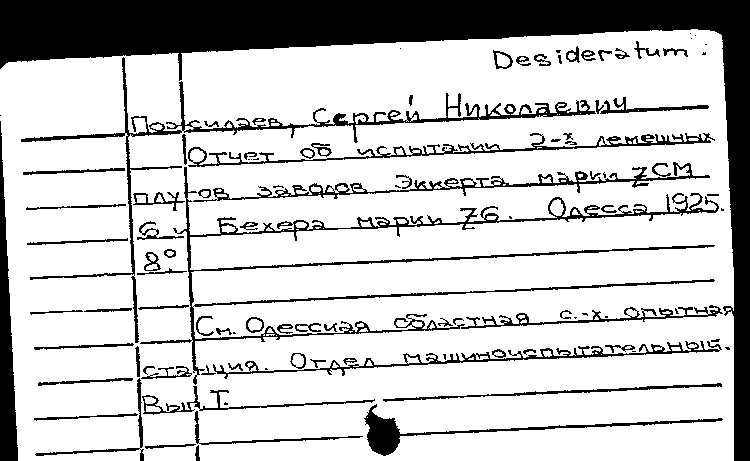 Desideratum.
Пожидаев, Сергей Николаевич
Отчет об испытании 2-х лемешных
плугов заводов Эккерта марки ZCM
6 и Бехера марки Z6. Одесса, 1925.
8°.
См. Одесская областная с.-х. опытная
станция. Отдел машиноиспытательный.
Вып. I.